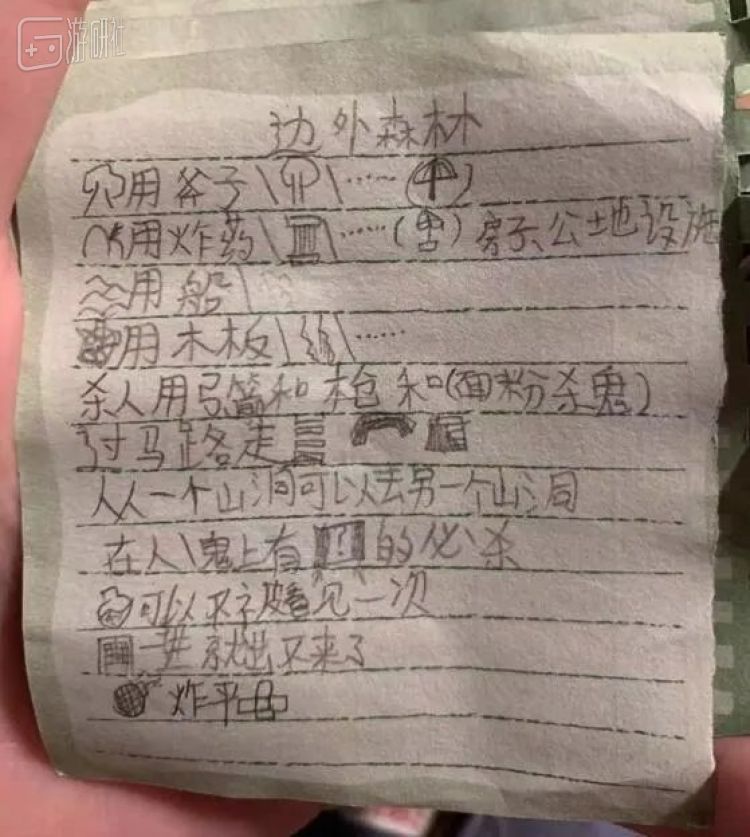 游研社
边外森林
用斧子\ \……( )
用炸药\ \……( ) 房子公地设施
用船\
用木板\ \……
杀人用弓箭和枪和(面粉杀鬼)
过马路走
从一个山洞可以去另一个山洞
在人\鬼上有 ? 的必杀
可以不被看见一次
进就出不来了
炸平